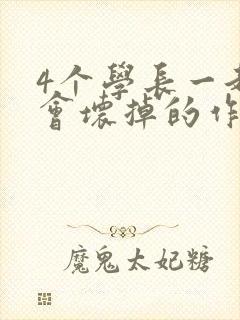 4个學長一
會壞掉的作
魔鬼太妃糖